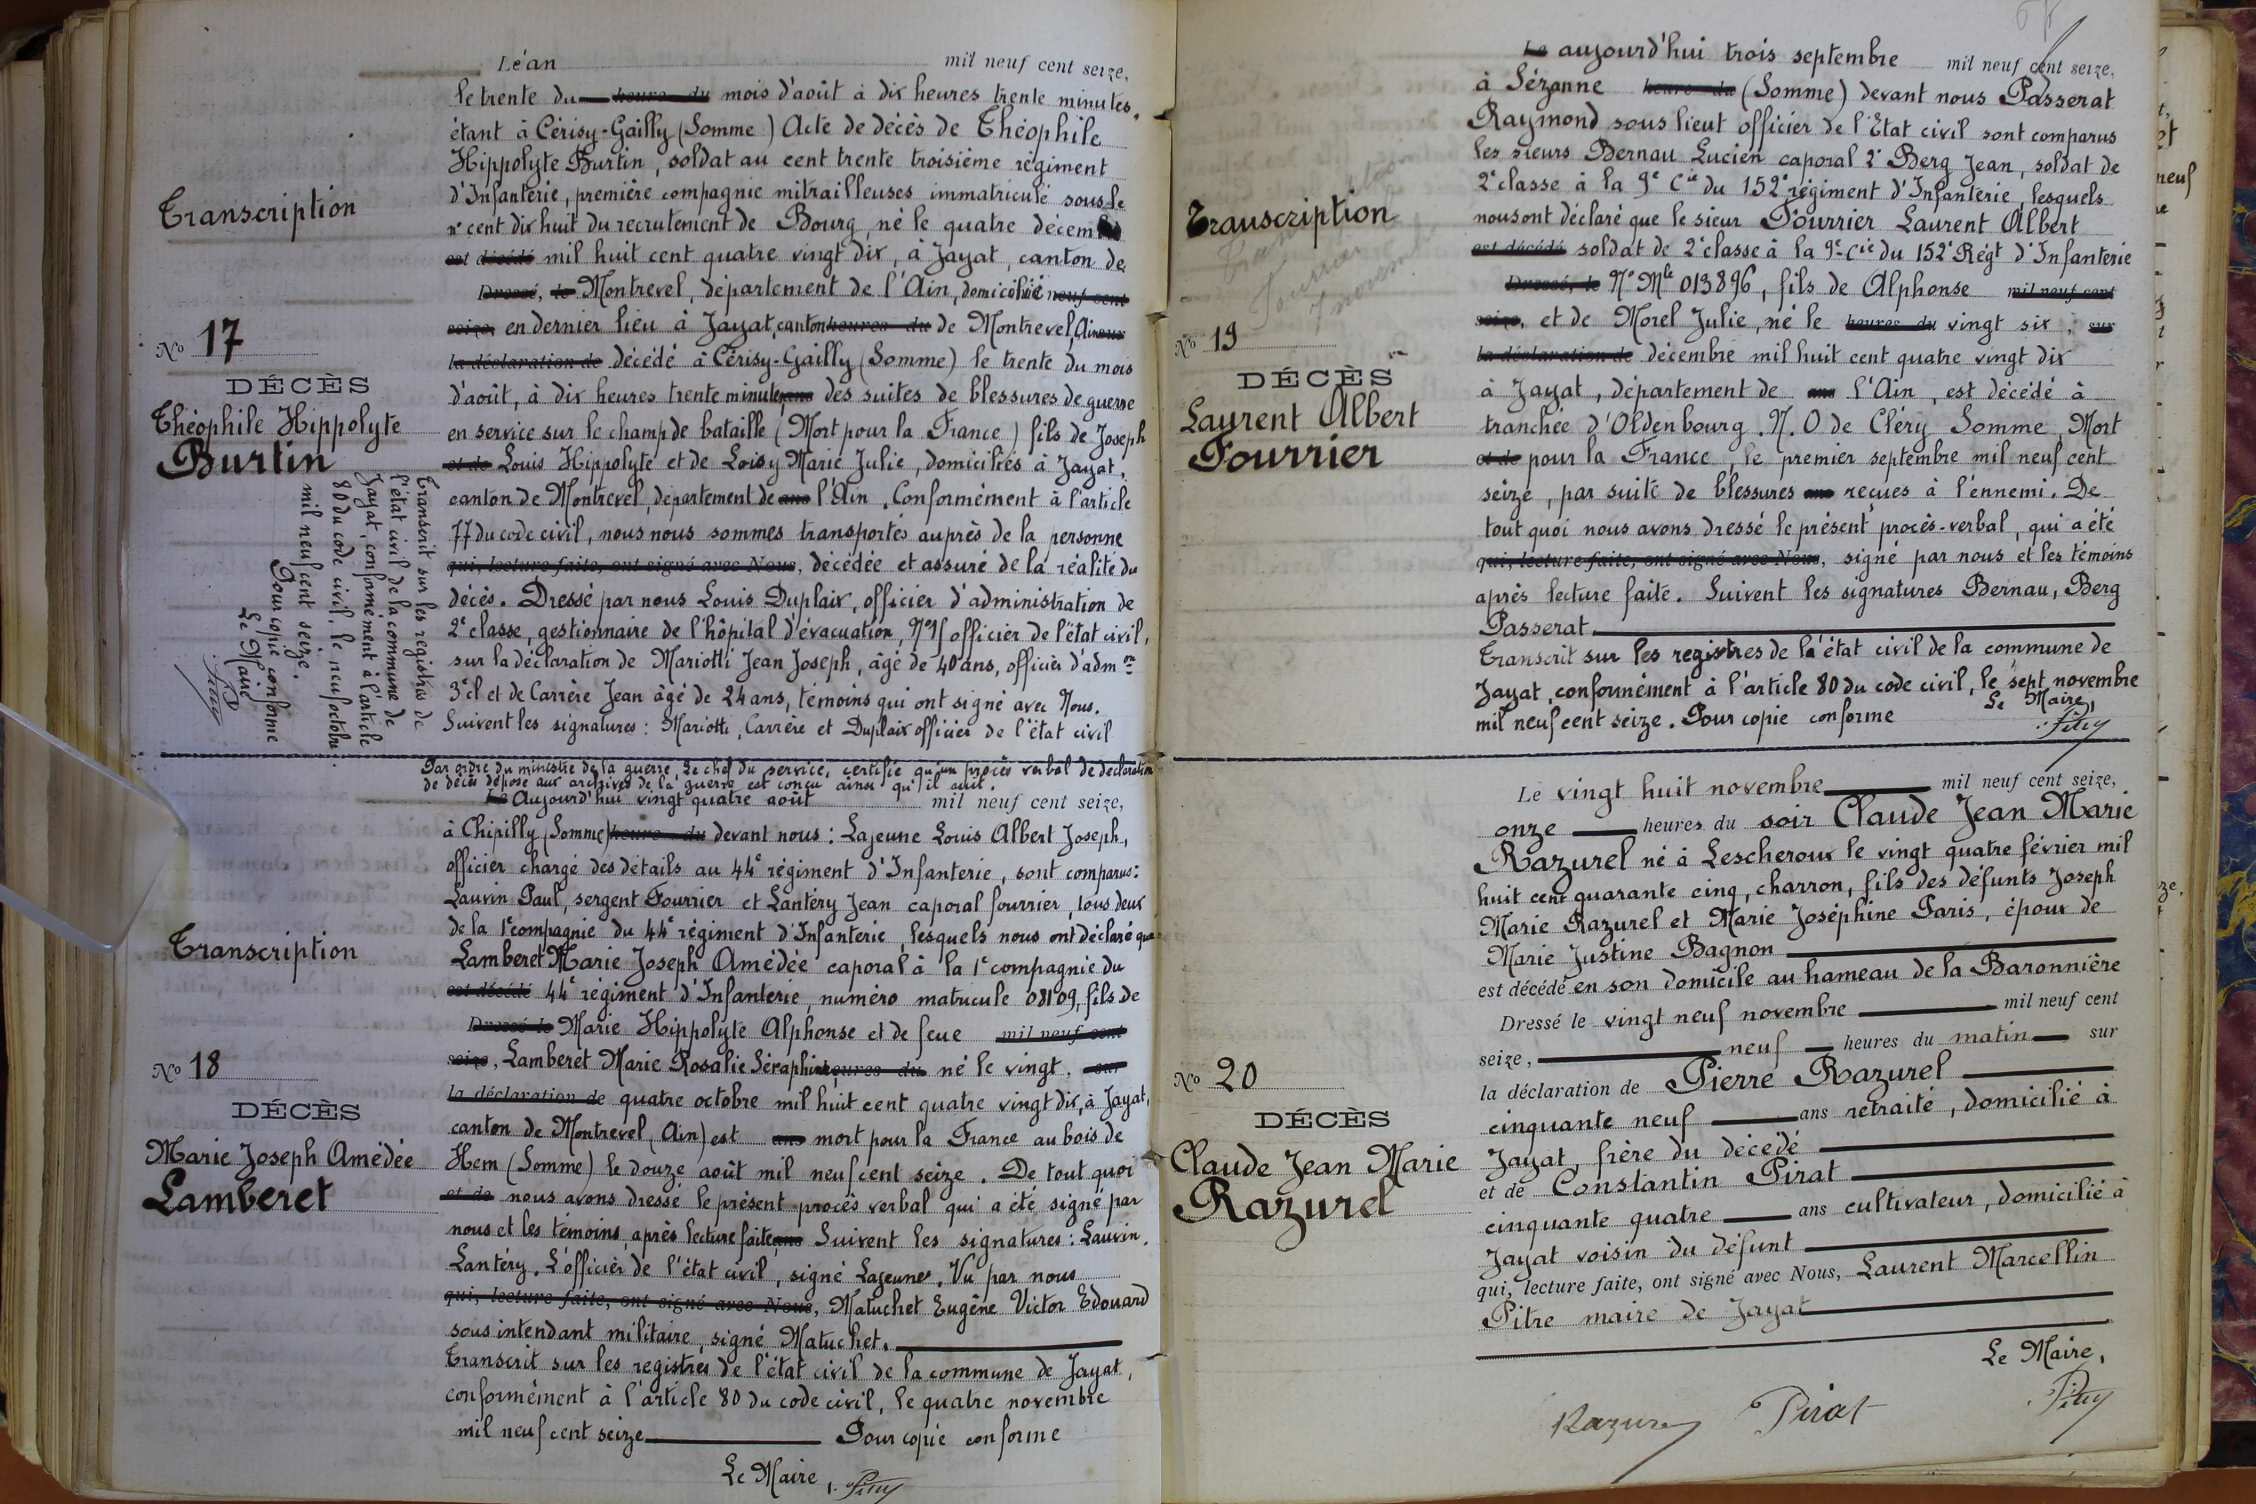 L'an mil neuf cent seize,
le trente du heure du mois d'août à dix heures trente minutes.
étant à Cérisy-Gailly (Somme) Acte de décès de Théophile
Hippolyte Burtin, soldat au cent trente troisième régiment
d'Infanterie, première compagnie mitrailleuses immatriculé sous le
n° cent dix huit du recrutement de Bourg, né le quatre décembre
est décédé mil huit cent quatre vingt dix, à Jayat, canton de
Dressé, le Montrevel, département de l'Ain, domicilié neuf cent
seize, en dernier lieu à Jayat, canton heures du de Montrevel, Ain sur
la déclaration de décédé à Cérisy-Gailly (Somme) le trente du mois
d'août, à dix heures trente minutes ans des suites de blessures de guerre
en service sur le champ de bataille (Mort pour la France) fils de Joseph
et de Louis Hippolyte et de Loisy Marie Julie, domiciliés à Jayat,
canton de Montrevel, département de ans l'Ain. Conformément à l'article
77 du code civil, nous nous sommes transportés auprès de la personne
qui, lecture faite, ont signé avec Nous, décédée et assuré de la réalité du
décès. Dressé par nous Louis Duplaix, officier d'administration de
2e classe, gestionnaire de l'hôpital d'évacuation, officier de l'état civil,
sur la déclaration de Mariotti Jean Joseph, âgé de 40 ans, officier d'adm on
3e cl et de Carrère Jean âgé de 24 ans, témoins qui ont signé avec Nous.
Suivent les signatures: Mariotti, Carrère et Duplaix officier de l'état civil
Transcription
No 17
DÉCÈS
Théophile Hippolyte
Burtin
Transcrit sur les registres de
l'état civil de la commune de
Jayat, conformément à l'article
80 du code civil, le neuf octobre
mil neuf cent seize.
Pour copie conforme
Le Maire
Par ordre du ministre de la guerre, le chef du service, certifie qu'un procès verbal de déclaration
de décès déposé aux archives de la guerre est conçu ainsi qu'il suit.
Le Aujourd'hui vingt quatre août mil neuf cent seize,
à Chipilly (Somme) heure du devant nous: Lajeune Louis Albert Joseph,
officier chargé des détails au 44e régiment d'Infanterie, sont comparus:
Lauvin Paul, sergent Fourrier et Lantéry Jean caporal fourrier, tous deux
de la 1e compagnie du 44e régiment d'Infanterie, lesquels nous ont déclaré que
Lamberet Marie Joseph Amédée caporal à la 1e compagnie du
est décédé 44e régiment d'Infanterie, numéro matricule 08109, fils de
Dressé le Marie Hippolyte Alphonse et de feue mil neuf cent
seize, Lamberet Marie Rosalie Séraphine heures du né le vingt, sur
la déclaration de quatre octobre mil huit cent quatre vingt dix, à Jayat,
canton de Montrevel (Ain) est ans mort pour la France au bois de
Hem (Somme) le douze août mil neuf cent seize. De tout quoi
et de nous avons dressé le présent procès verbal qui a été signé par
nous et les témoins, après lecture faite ans Suivent les signatures: Lauvin,
Lantéry. L'officier de l'état civil, signé Lajeune. Vu par nous
qui, lecture faite, ont signé avec Nous, Matuchet Eugène Victor Edouard
sous intendant militaire, signé Matuchet.
Transcrit sur les registres de l'état civil de la commune de Jayat,
conformément à l'article 80 du code civil, le quatre novembre
mil neuf cent seize Pour copie conforme
Le Maire,
Transcription
No 18
DÉCÈS
Marie Joseph Amédée
Lamberet
Le aujourd'hui trois septembre mil neuf cent seize,
à Sézanne heure du (Somme) devant nous Passerat
Raymond sous lieut officier de l'Etat civil sont comparus
les sieurs Bernau Lucien caporal 2° Berg Jean, soldat de
2e classe à la 9e Cie du 152e régiment d'Infanterie, lesquels
nous ont déclaré que le sieur Fourrier Laurent Albert
est décédé soldat de 2e classe à la 9e Cie du 152e Régt d'Infanterie
Dressé, le No Mle 013896, fils de Alphonse mil neuf cent
seize, et de Morel Julie, né le heures du vingt six, sur
la déclaration de décembre mil huit cent quatre vingt dix
à Jayat, département de ans l'Ain, est décédé à
tranchée d'Oldenbourg. N.O de Cléry Somme, Mort
et de pour la France, le premier septembre mil neuf cent
seize, par suite de blessures ans reçues à l'ennemi. De
tout quoi nous avons dressé le présent procès-verbal, qui a été
qui, lecture faite, ont signé avec Nous, signé par nous et les témoins
après lecture faite. Suivent les signatures Bernau, Berg
Passerat
Transcrit sur les registres de l'état civil de la commune de
Jayat, conformément à l'article 80 du code civil, le sept novembre
mil neuf cent seize. Pour copie conforme Le Maire,
Transcription
No 19
DÉCÈS
Laurent Albert
Fourrier
Le vingt huit novembre mil neuf cent seize,
onze heures du soir Claude Jean Marie
Razurel né à Lescheroux le vingt quatre février mil
huit cent quarante cinq, charron, fils des défunts Joseph
Marie Razurel et Marie Joséphine Paris, époux de
Marie Justine Bagnon
est décédé en son domicile au hameau de la Baronnière
Dressé le vingt neuf novembre mil neuf cent
seize, neuf heures du matin sur
la déclaration de Pierre Razurel
cinquante neuf ans retraité, domicilié à
Jayat, frère du décédé
et de Constantin Pirat
cinquante quatre ans cultivateur, domicilié à
Jayat voisin du défunt
qui, lecture faite, ont signé avec Nous, Laurent Marcellin
Pitre maire de Jayat
Le Maire,
Razurel Pirat
No 20
DÉCÈS
Claude Jean Marie
Razurel